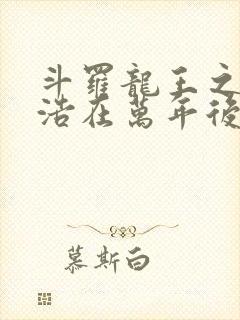 斗羅龍王之
浩在萬年後
慕斯白